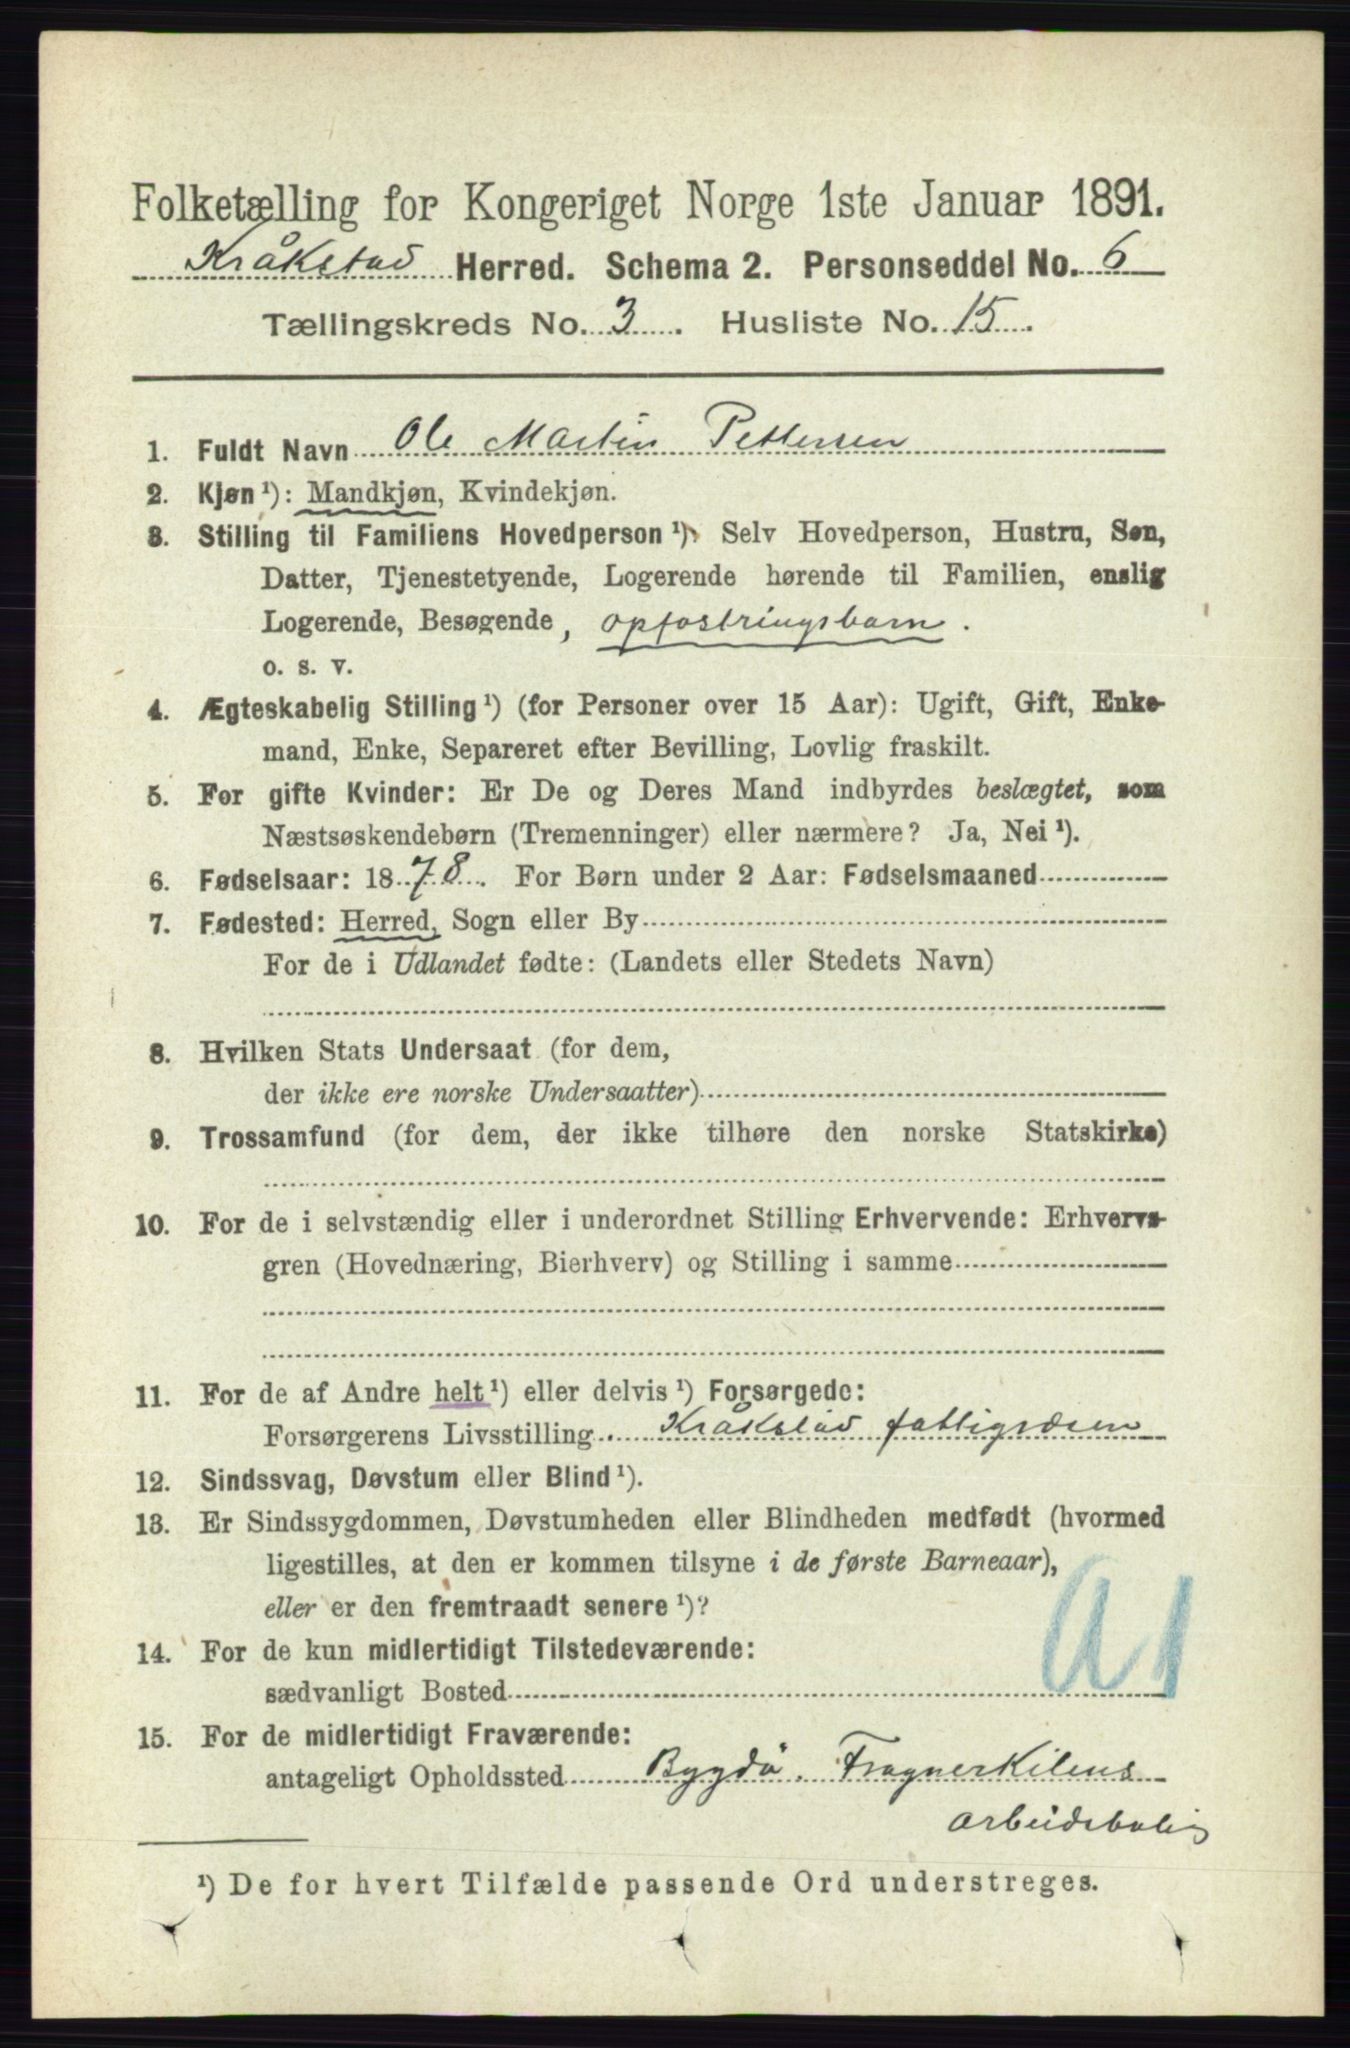 Folketælling for Kongeriget Norge 1ste Januar 1891.
Kråkstad Herred. Schema 2. Personseddel No. 6
Tællingskreds No. 3. Husliste No. 15.
1. Fuldt Navn Ole Martin Pettersen
2. Kjøn ¹): Mandkjøn, Kvindekjøn.
3. Stilling til Familiens Hovedperson ¹): Selv Hovedperson, Hustru, Søn,
Datter, Tjenestetyende, Logerende hørende til Familien, enslig
Logerende, Besøgende, opfostringsbarn.
o. s. v.
4. Ægteskabelig Stilling ¹) (for Personer over 15 Aar): Ugift, Gift, Enke-
mand, Enke, Separeret efter Bevilling, Lovlig fraskilt.
5. For gifte Kvinder: Er De og Deres Mand indbyrdes beslægtet, som
Næstsøskendebørn (Tremenninger) eller nærmere? Ja, Nei ¹).
6. Fødselsaar: 1878. For Børn under 2 Aar: Fødselsmaaned
7. Fødested: Herred, Sogn eller By
For de i Udlandet fødte: (Landets eller Stedets Navn)
8. Hvilken Stats Undersaat (for dem,
der ikke ere norske Undersaatter)
9. Trossamfund (for dem, der ikke tilhøre den norske Statskirke)
10. For de i selvstændig eller i underordnet Stilling Erhvervende: Erhvervs-
gren (Hovednæring, Bierhverv) og Stilling i samme
11. For de af Andre helt ¹) eller delvis ¹) Forsørgede:
Forsørgerens Livsstilling. Kråkstad fattigvæsen
12. Sindssvag, Døvstum eller Blind ¹).
13. Er Sindssygdommen, Døvstumheden eller Blindheden medfødt (hvormed
ligestilles, at den er kommen tilsyne i de første Barneaar),
eller er den fremtraadt senere ¹)?
A1
14. For de kun midlertidigt Tilstedeværende:
sædvanligt Bosted
15. For de midlertidigt Fraværende:
antageligt Opholdssted Bygdö, Frognerkilens
arbeidsbolig
¹) De for hvert Tilfælde passende Ord understreges.